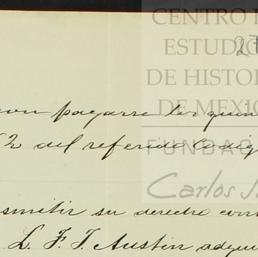 CENTRO DE
ESTUDIOS
DE HISTOR
DE MÉXIC
FUNDAC
Carlos S
27
con pagarse los quin
2 del referido Codig
smitir su derecho con
L. F. J. Austin adqui